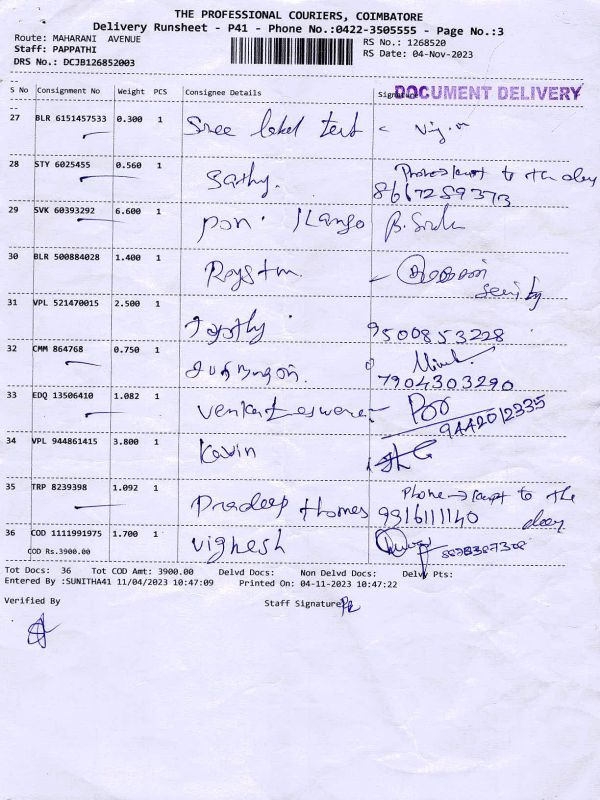 THE PROFESSIONAL COURIERS, COIMBATORE
Delivery Runsheet - P41 - Phone No.:0422-3505555 - Page No.:3
Route: MAHARANI AVENUE
Staff: PAPPATHI
DRS No.: DCJB126852003
RS No.: 1268520
RS Date: 04-Nov-2023
S No Consignment No Weight PCS Consignee Details Signature
DOCUMENT DELIVERY
27 BLR 6151457533 0.300 1 Sree label text
28 STY 6025455 0.560 1 Sathy. Phone kept to the
8667289373
29 SVK 60393292 6.600 1 Pon. Ilango
30 BLR 500884028 1.400 1
31 VPL 521470015 2.500 1 9500853228
32 CMM 864768 0.750 1
7904303290
33 EDQ 13506410 1.082 1
9442012335
34 VPL 944861415 3.800 1 Kavin
35 TRP 8239398 1.092 1 Pradeep thomes Phone → kept to the
9316111140
36 COD 1111991975 1.700 1 Vighesh
COD Rs.3900.00
Tot Docs: 36 Tot COD Amt: 3900.00 Delvd Docs: Non Delvd Docs: Delvy Pts:
Entered By :SUNITHA41 11/04/2023 10:47:09 Printed On: 04-11-2023 10:47:22
Verified By Staff Signature